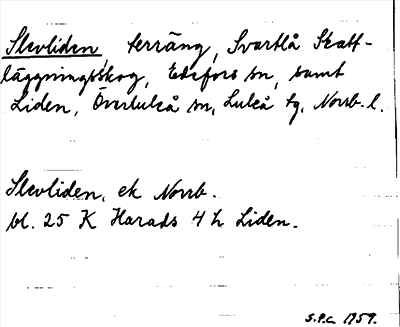 Slevliden, terräng, Svartlå Skatt-
läggningsskog, Edefors sn, samt
Liden, Överluleå sn, Luleå tg, Norrb. l.
Slevliden, ek Norrb.
bl. 25 K Harads 4 h Liden.
S.P.C. 1959.